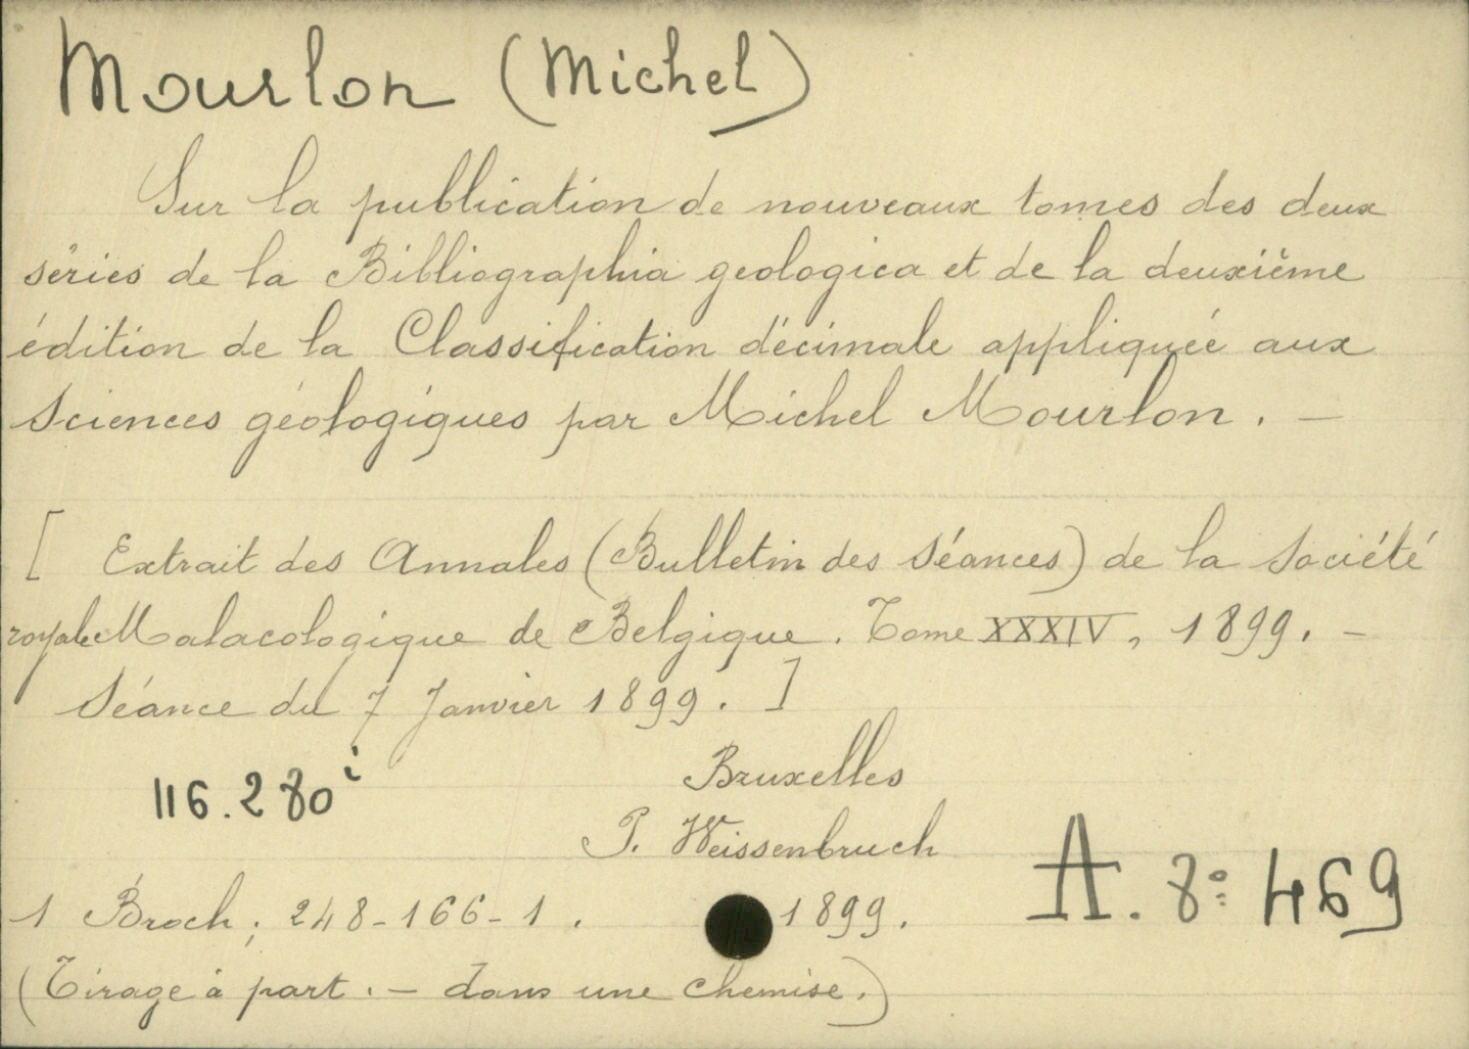 Mourlon (Michel)
Sur la publication de nouveaux tomes des deux
séries de la Bibliographia geologica et de la deuxième
édition de la Classification décimale appliquée aux
Sciences géologiques par Michel Mourlon. —
[ Extrait des Annales (Bulletin des Séances) de la Société
royale Malacologique de Belgique. Tome XXXIV, 1899. —
Séance du 7 Janvier 1899. ]
116.280i
Bruxelles
P. Weissenbruch
A. 8º: 469
1 Broch; 248-166-1. 1899.
(Tirage à part. — dans une chemise.)